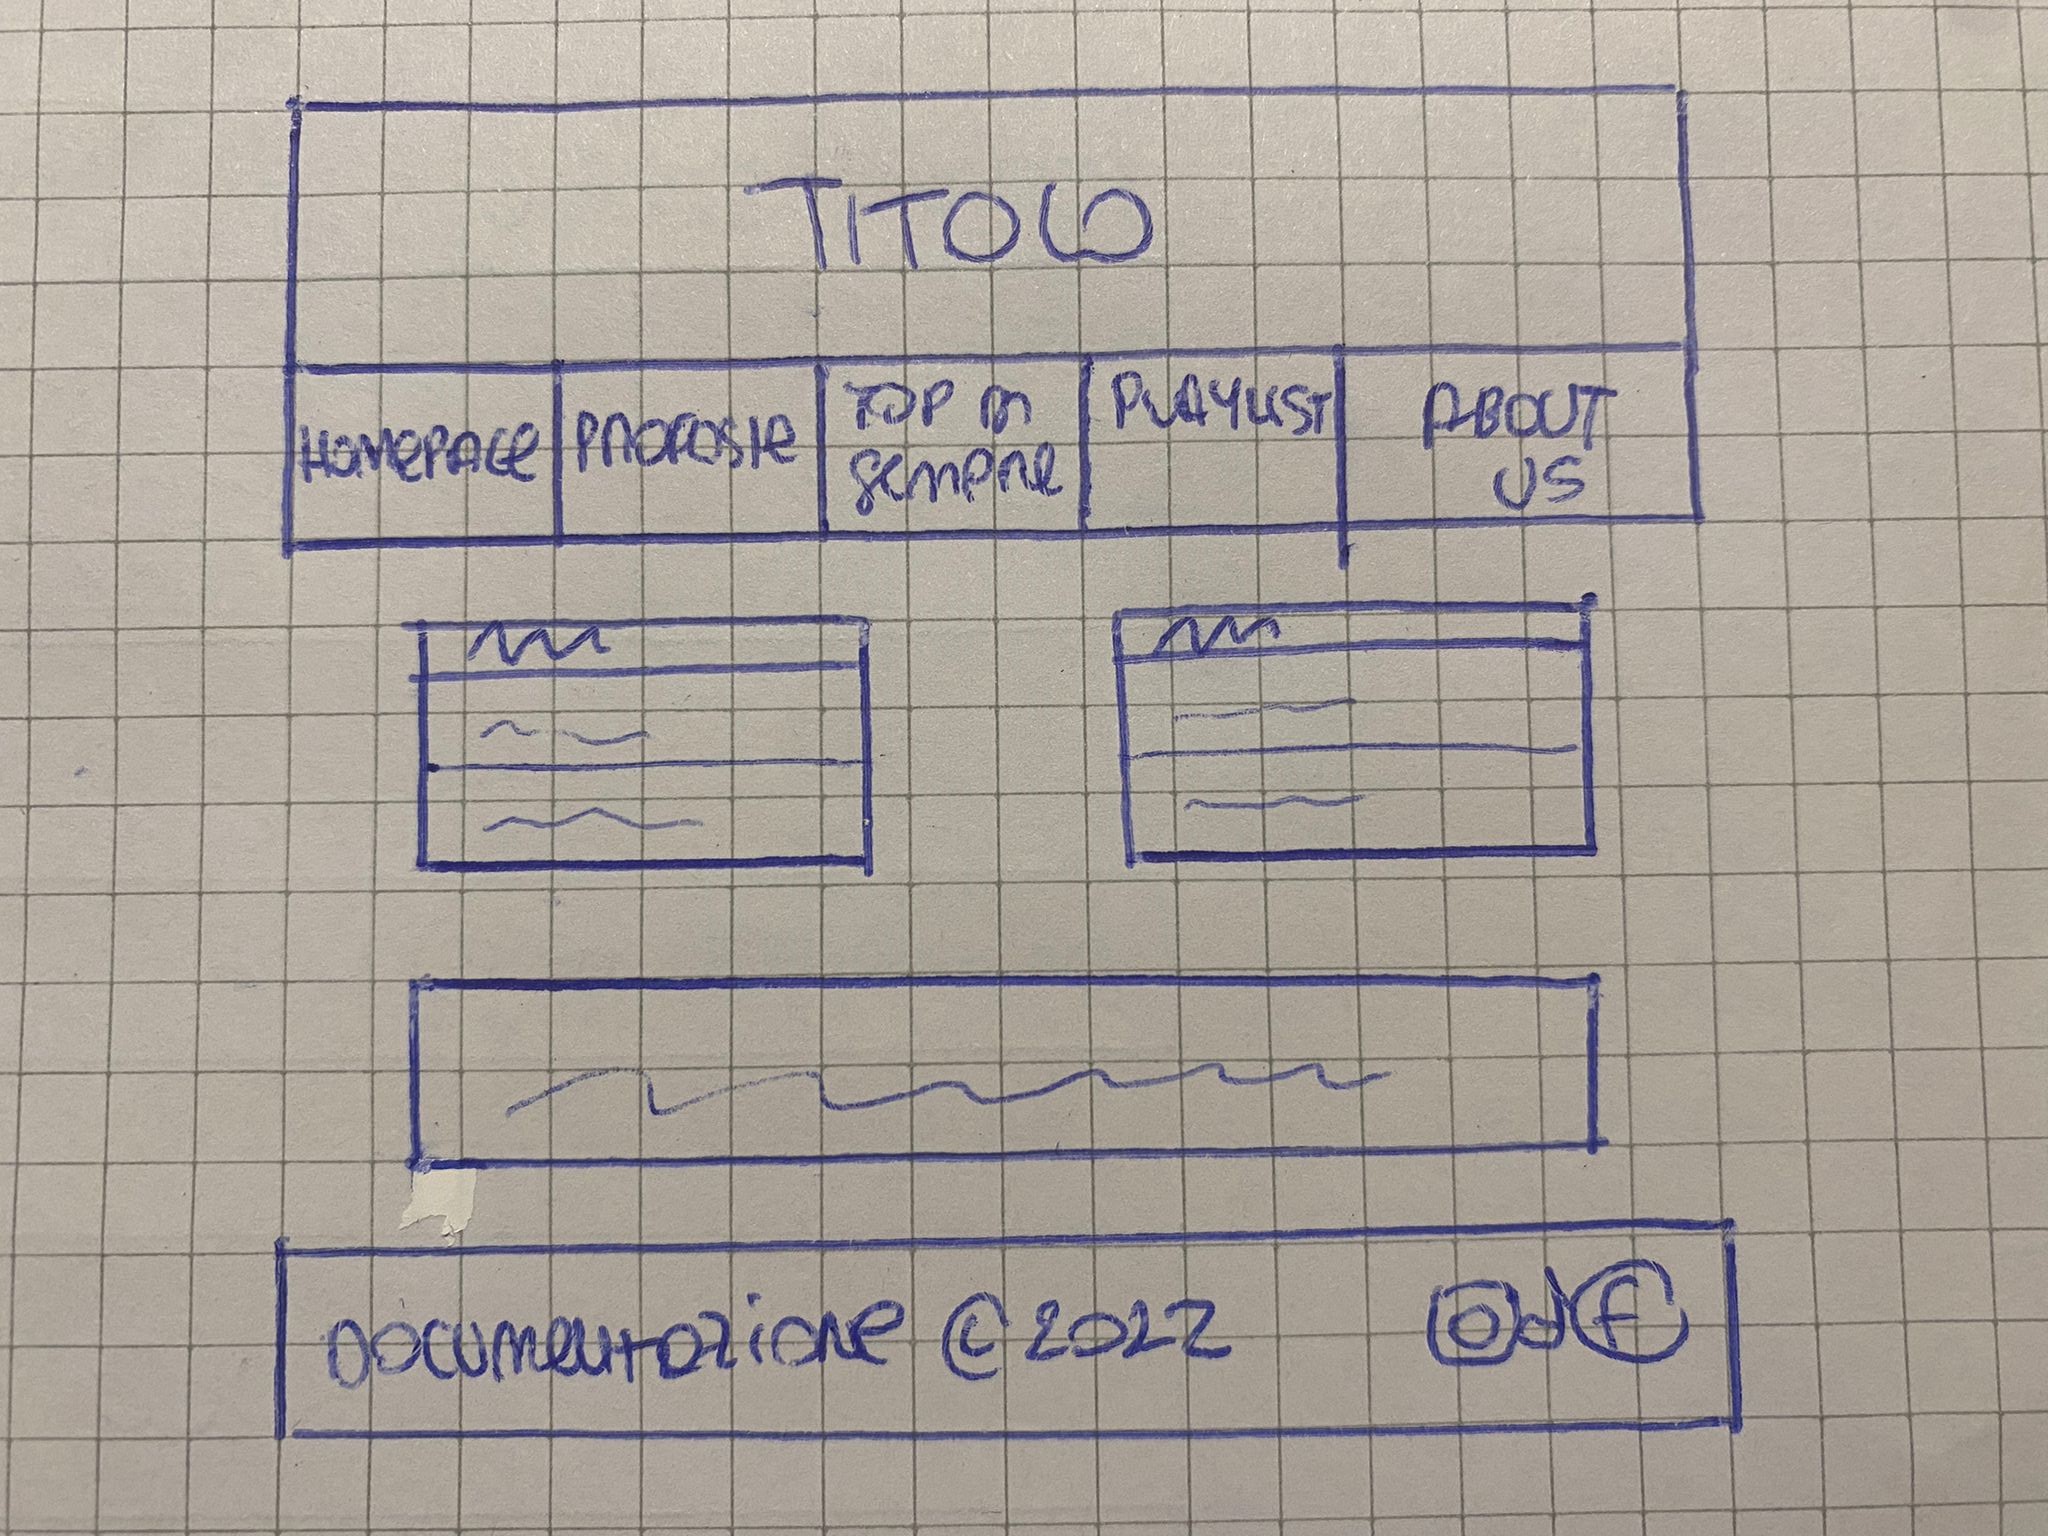 TITOLO
HOMEPAGE
PROPOSTE
TOP DI
SEMPRE
PLAYLIST
ABOUT
US
DOCUMENTAZIONE © 2022
f